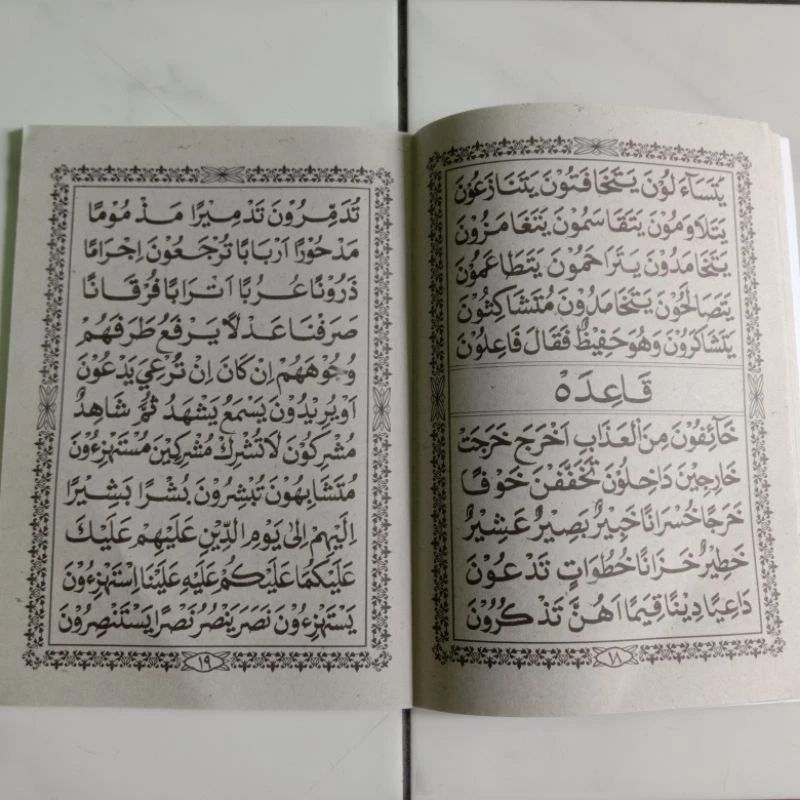 يَتَسَآءَلُوْنَ يَتَخَافَتُوْنَ يَتَنَازَعُوْنَ
يَتَلَاوَمُوْنَ يَتَقَاسَمُوْنَ يَتَغَامَزُوْنَ
يَتَحَامَدُوْنَ يَتَرَاحَمُوْنَ يَتَطَاعَمُوْنَ
يَتَصَالَحُوْنَ يَتَخَامَدُوْنَ مُتَشَاكِسُوْنَ
يَتَشَاكَرُوْنَ وَهُوَ حَفِيْظٌ فَقَالَ فَاعِلُوْنَ
قَاعِدَهْ
خَآئِفُوْنَ مِنَ الْعَذَابِ اَخْرَجَ خَرَجَتْ
خَارِجِيْنَ دَاخِلُوْنَ تَخَفَّفْنَ خَوْفًا
خَرَجًا خُسْرَانًا خَبِيْرٌ بَصِيْرٌ عَشِيْرٌ
خَطِيْرٌ خَزَانًا خُطُوَاتٍ تَدْعُوْنَ
دَاعِيًا دِيْنًا قِيَمًا اَهُنَّ تَذْكُرُوْنَ
١٨
تُدَمِّرُوْنَ تَدْمِيْرًا مَذْمُوْمًا
مَدْحُوْرًا اَرْبَابًا تُرْجَعُوْنَ اِجْرَامًا
ذَرُوْنَا عُرُبًا اَتْرَابًا فُرْقَانًا
صَرَفْنَا عَذْلًا يَرْفَعُ طَرَفَهُمْ
وُجُوْهَهُمْ اِنْ كَانَ اِنْ تُرْعِيَ يَدْعُوْنَ
اَوْ يُرِيْدُوْنَ يَسْمَعُ يَشْهَدُ ثُمَّ شَاهِدٌ
مُشْرِكُوْنَ لَا تُشْرِكْ مُشْرِكِيْنَ مُسْتَهْزِءُوْنَ
مُتَشَابِهُوْنَ تُبْشِرُوْنَ بُشْرًا بَشِيْرًا
اِلَيْهِمْ اِلٰى يَوْمِ الدِّيْنِ عَلَيْهِمْ عَلَيْكَ
عَلَيْكُمَا عَلَيْكُمْ عَلَيْهِ عَلَيْنَا اِسْتَهْزِءُوْنَ
يَسْتَهْزِءُوْنَ نَصَرَ يَنْصُرُ نَصْرًا يَسْتَنْصِرُوْنَ
١٩